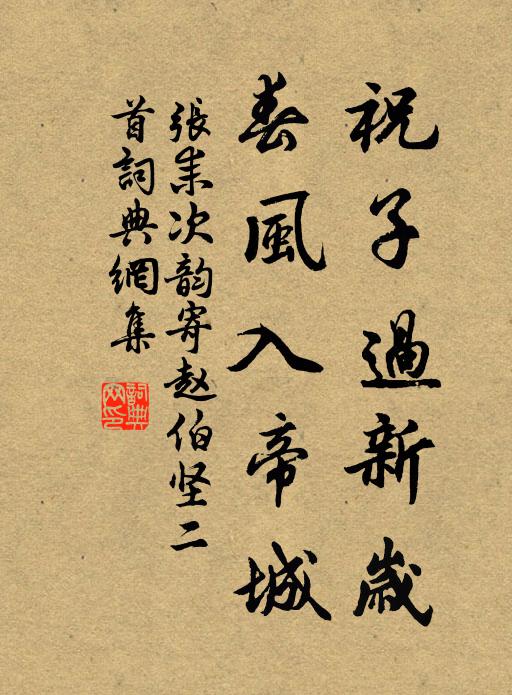 祝子過新歲
春風入帝城
張耒次韵寄赵伯坚二
首詞典網集
詞典
网印